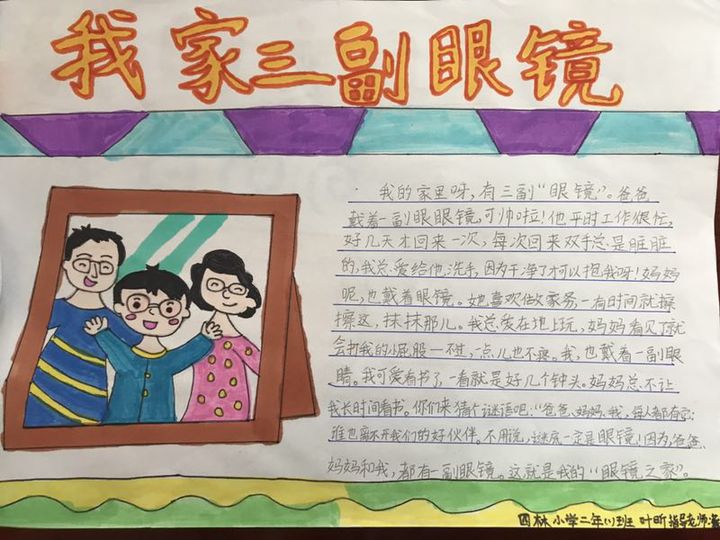 我家三副眼镜
我的家里呀,有三副“眼镜”。爸爸
戴着一副眼眼镜,可帅啦!他平时工作很忙,
好几天才回来一次,每次回来双手总是脏脏
的,我总爱给他洗手,因为干净了才可以抱我呀!妈妈
呢,也戴着眼镜。她喜欢做家务一有时间就擦
擦这,抹抹那儿。我总爱在地上玩,妈妈看见了就
会打我的小屁股一不过,一点儿也不疼。我,也戴着一副眼
睛。我可爱看书了,一看就是好几个钟头。妈妈总不让
我长时间看书。你们来猜个谜语吧:“爸爸、妈妈、我,每人都有
谁也离不开我们的好伙伴。不用说,谜底一定是眼镜!因为,爸爸、
妈妈和我,都有一副眼镜。这就是我的“眼镜之家”。
四林小学二年(1)班 叶昕 指导老师: